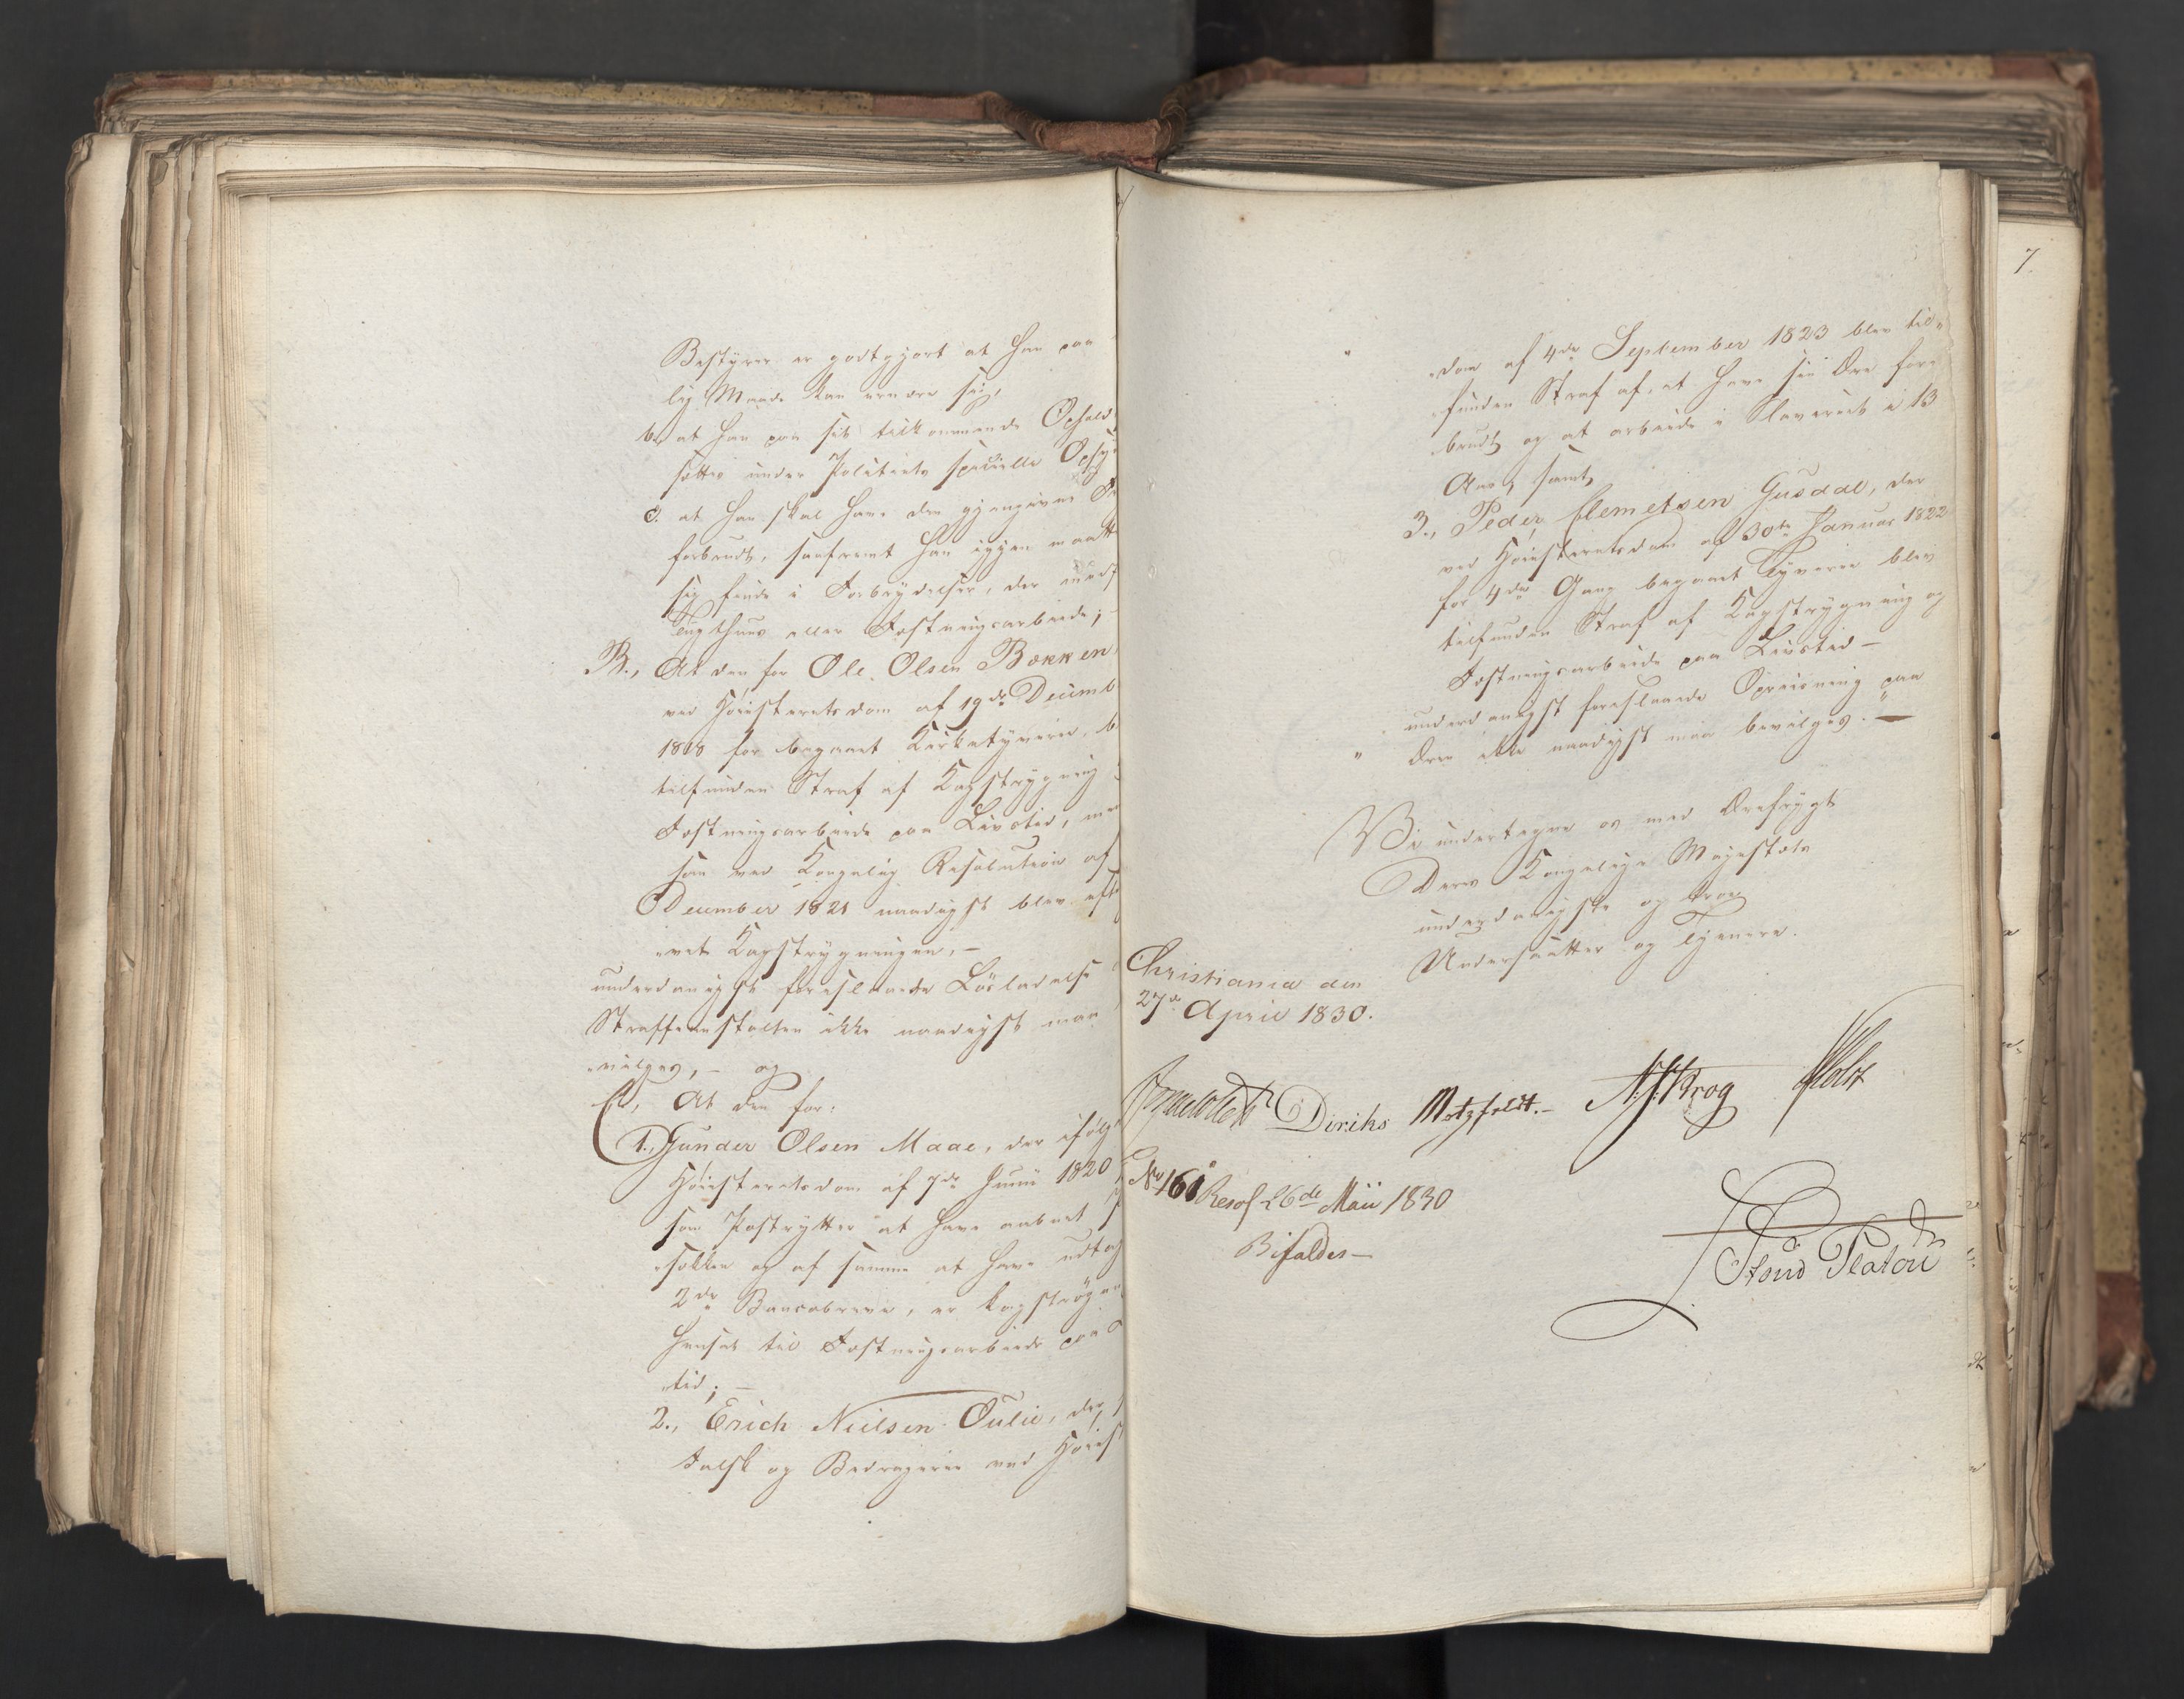 Bestyrer er godtgjort at han paa
lig Maade kan ernære sig,
b., at han paa sit tilkommende Ophold
sættes under Politiets specielle Opsy
c. at han skal have den gjengivne Fr
forbrudt, saafremt han igjen maatt
sig finde i Forbrydelser, der medf
Tugthuus eller Fæstningsarbeide; -
B., At den for Ole Olsen Bækken
ved Høiesteretsdom af 19de Decemb
1818 for begaaet Kirketyverie, b
tilfunden Straf af Kagstrygning
Fæstningsarbeide paa Livstid, me
som ved Kongelig Resolution af
December 1821 naadigst blev eft
"vet Kagstrygningen, -
underdanigst foreslaaede Løsladelse
Straffeanstalten ikke naadigst maa
"vilges, - og
C., At den for:
1., Gunder Olsen Maae, der ifølg
Høiesteretsdom af 7de Junii 1820
som Postrytter at have aabnet P
"sækken og af samme at have udtag
2de Bancobreve, er kagstrøgen
hensat til Fæstningsarbeide paa
"tid; -
2., Erich Nielsen Oulie, der
Falsk og Bedragerie ved Høies
"dom af 4de September 1823 blev til"
"funden Straf af, at have sin Ære for"
"brudt og at arbeide i Slaveriet i 13
Aar, samt
3., Peder Clemetsen Gusdal, der
ved Høiesteretsdom af 30te Januar 1822
for 4de Gang begaaet Tyverie blev
tilfunden Straf af Kagstrygning og
Fæstningsarbeide paa Livstid -
underdanigst foreslaaede Opreisning paa
" Ære ikke naadigst maa bevilges. -
Vi undertegne os med Ærefrygt
Deres Kongelige Majestæts
underdanigste og troe
Undersaatter og Tjenere.
Christiania den
27de April 1830.
Diriks Motzfeldt. - Krog Holst
No 161 Resol 26de Maii 1830
Bifaldes -
Stoud Platou
7.